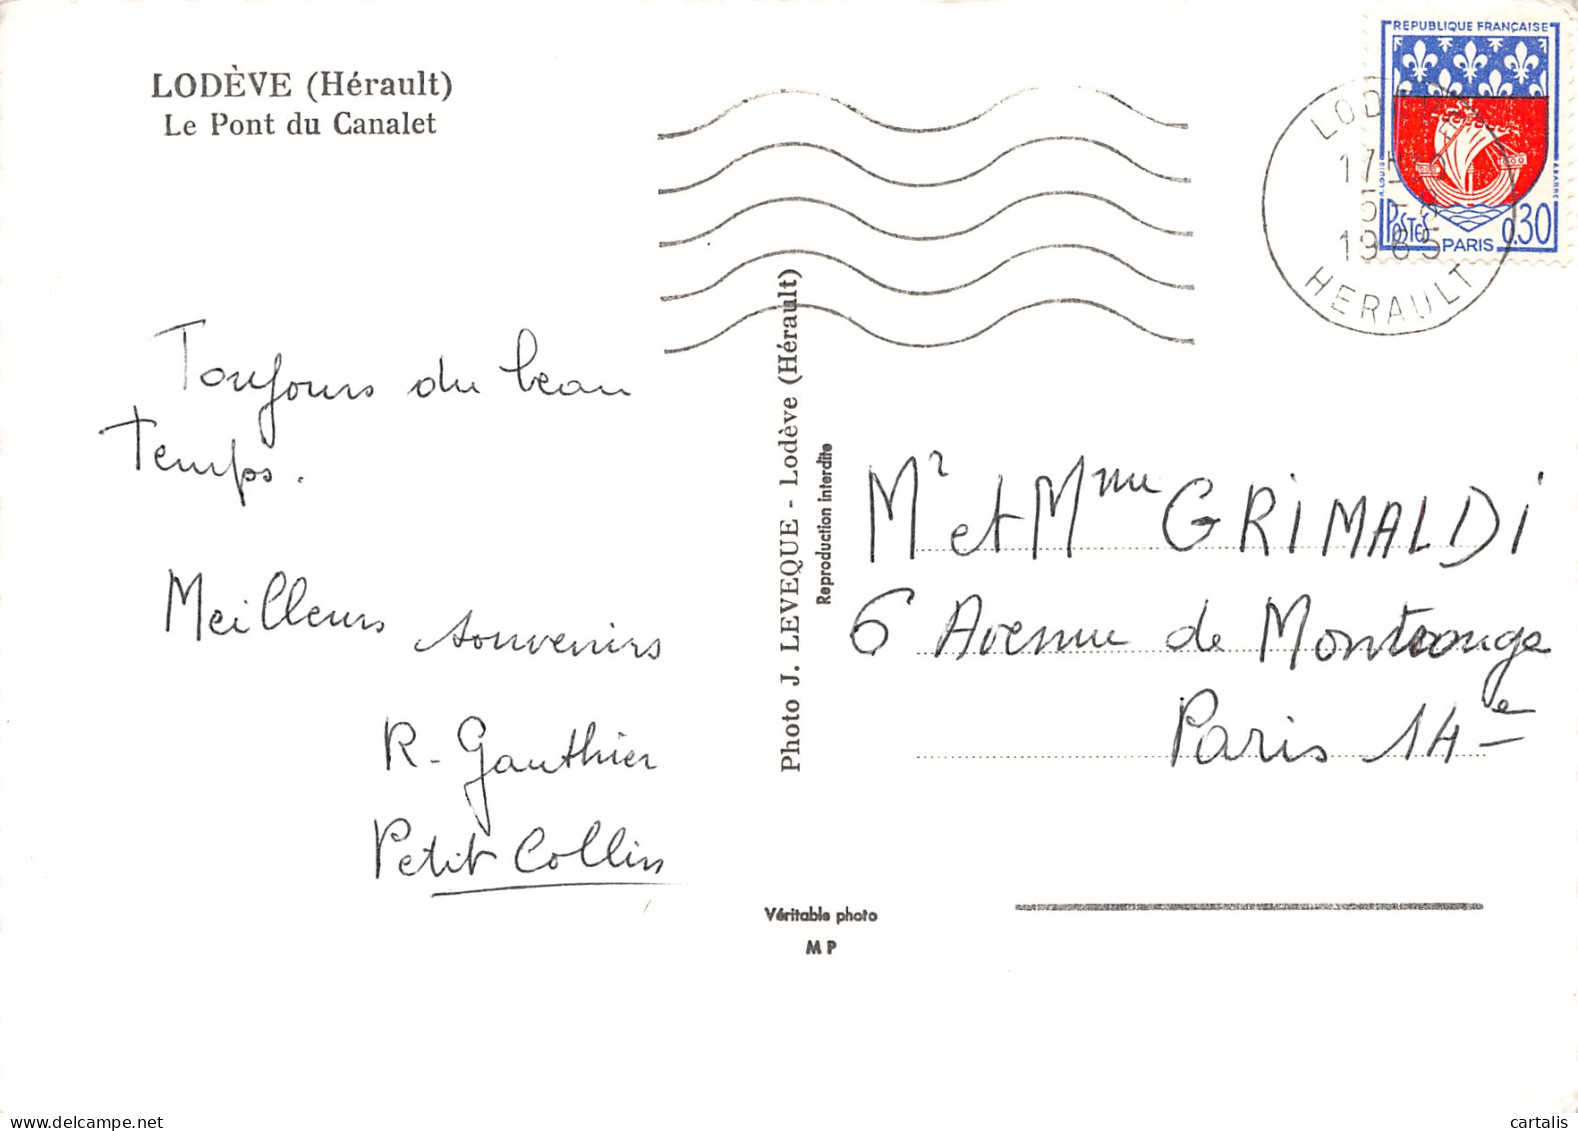 LODÈVE (Hérault)
Le Pont du Canalet
Toujours du beau
Temps.
Meilleurs souvenirs
R. Gauthier
Petit Collin
Photo J. LEVEQUE - Lodève (Hérault)
Reproduction interdite
Véritable photo
M P
REPUBLIQUE FRANÇAISE
POSTES
PARIS
0.30
1965
HERAULT
Mr et Mme GRIMALDI
6 Avenue de Montrouge
Paris 14e
delcampe.net
cartalis